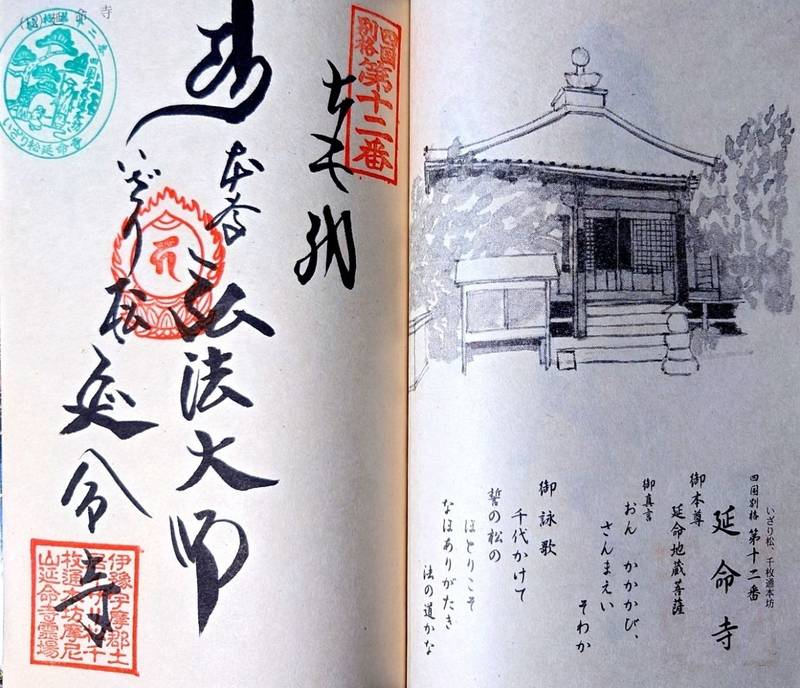 いざり松、千枚通本坊
四国別格 第十二番
延命寺
御本尊
延命地蔵菩薩
御真言
おん かかかび、
さんまえい
そわか
御詠歌
千代かけて
誓の松の
ほとりこそ
なほありがたき
法の道かな
四国
別格
第十二番
本尊
弘法大師
いざり松
延命寺
伊豫宇摩郡土
枚通本坊摩尼
山延命寺霊場
いざり松延命寺